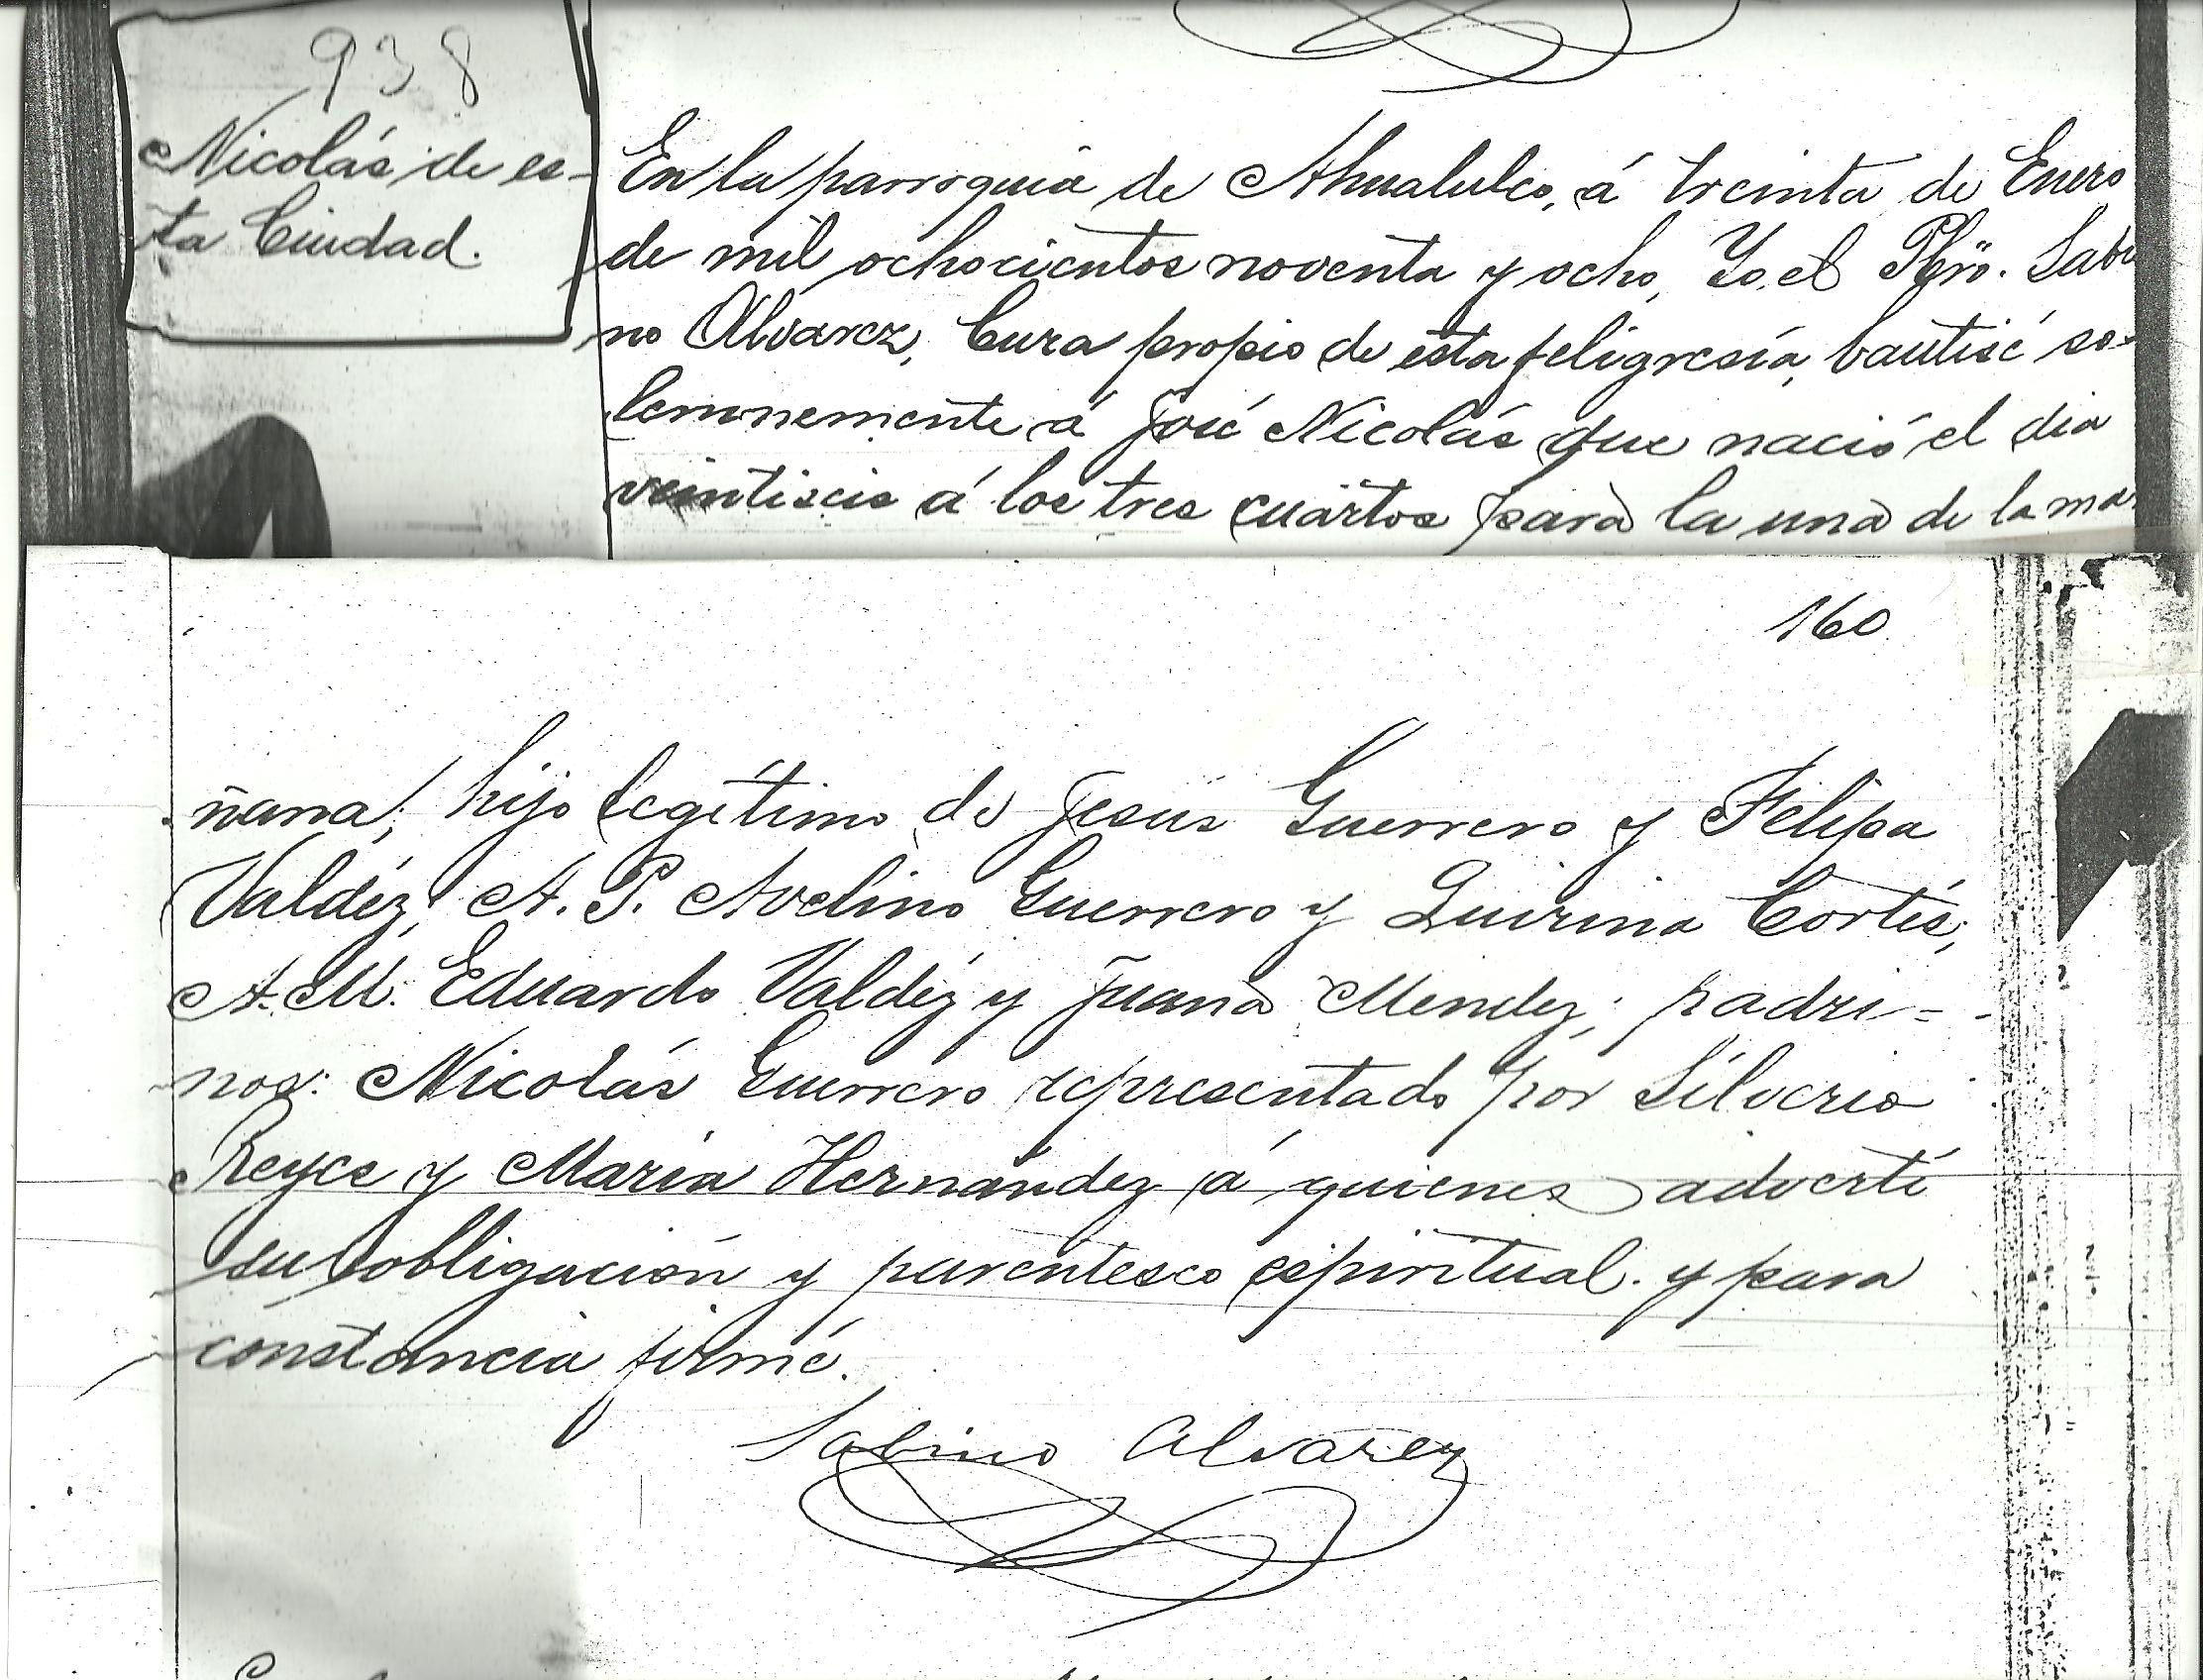 938
Nicolás de es-
ta Ciudad.
En la parroquia de Ahualulco, á treinta de Enero
de mil ochocientos noventa y ocho, Yo, el Pbro. Sabi
no Alvarez, Cura propio de esta feligresía, bautisé so-
lemnemente á José Nicolás que nació el dia
veintiseis á los tres cuartos para la una de la ma
160
ñana; hijo legítimo de Jesús Guerrero y Felipa
Valdéz, A. P. Avelino Guerrero y Quirina Cortés;
A. M. Eduardo Valdéz y Juana Mendez; padri=
nos: Nicolás Guerrero representado por Silverio
Reyes y María Hernández á quienes advertí
su obligación y parentesco espiritual. y para
constancia firmé.
Sabino Alvarez